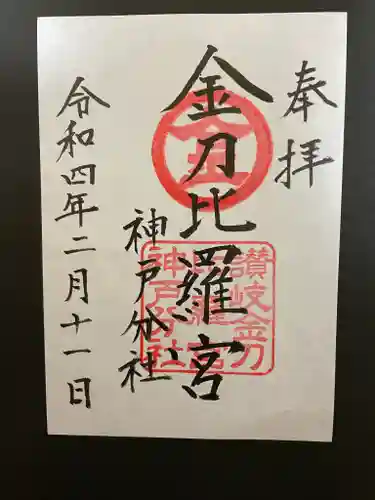 奉拝
金刀比羅宮
神戸分社
令和四年二月十一日
金
讃岐金刀
比羅宮
神戸分社